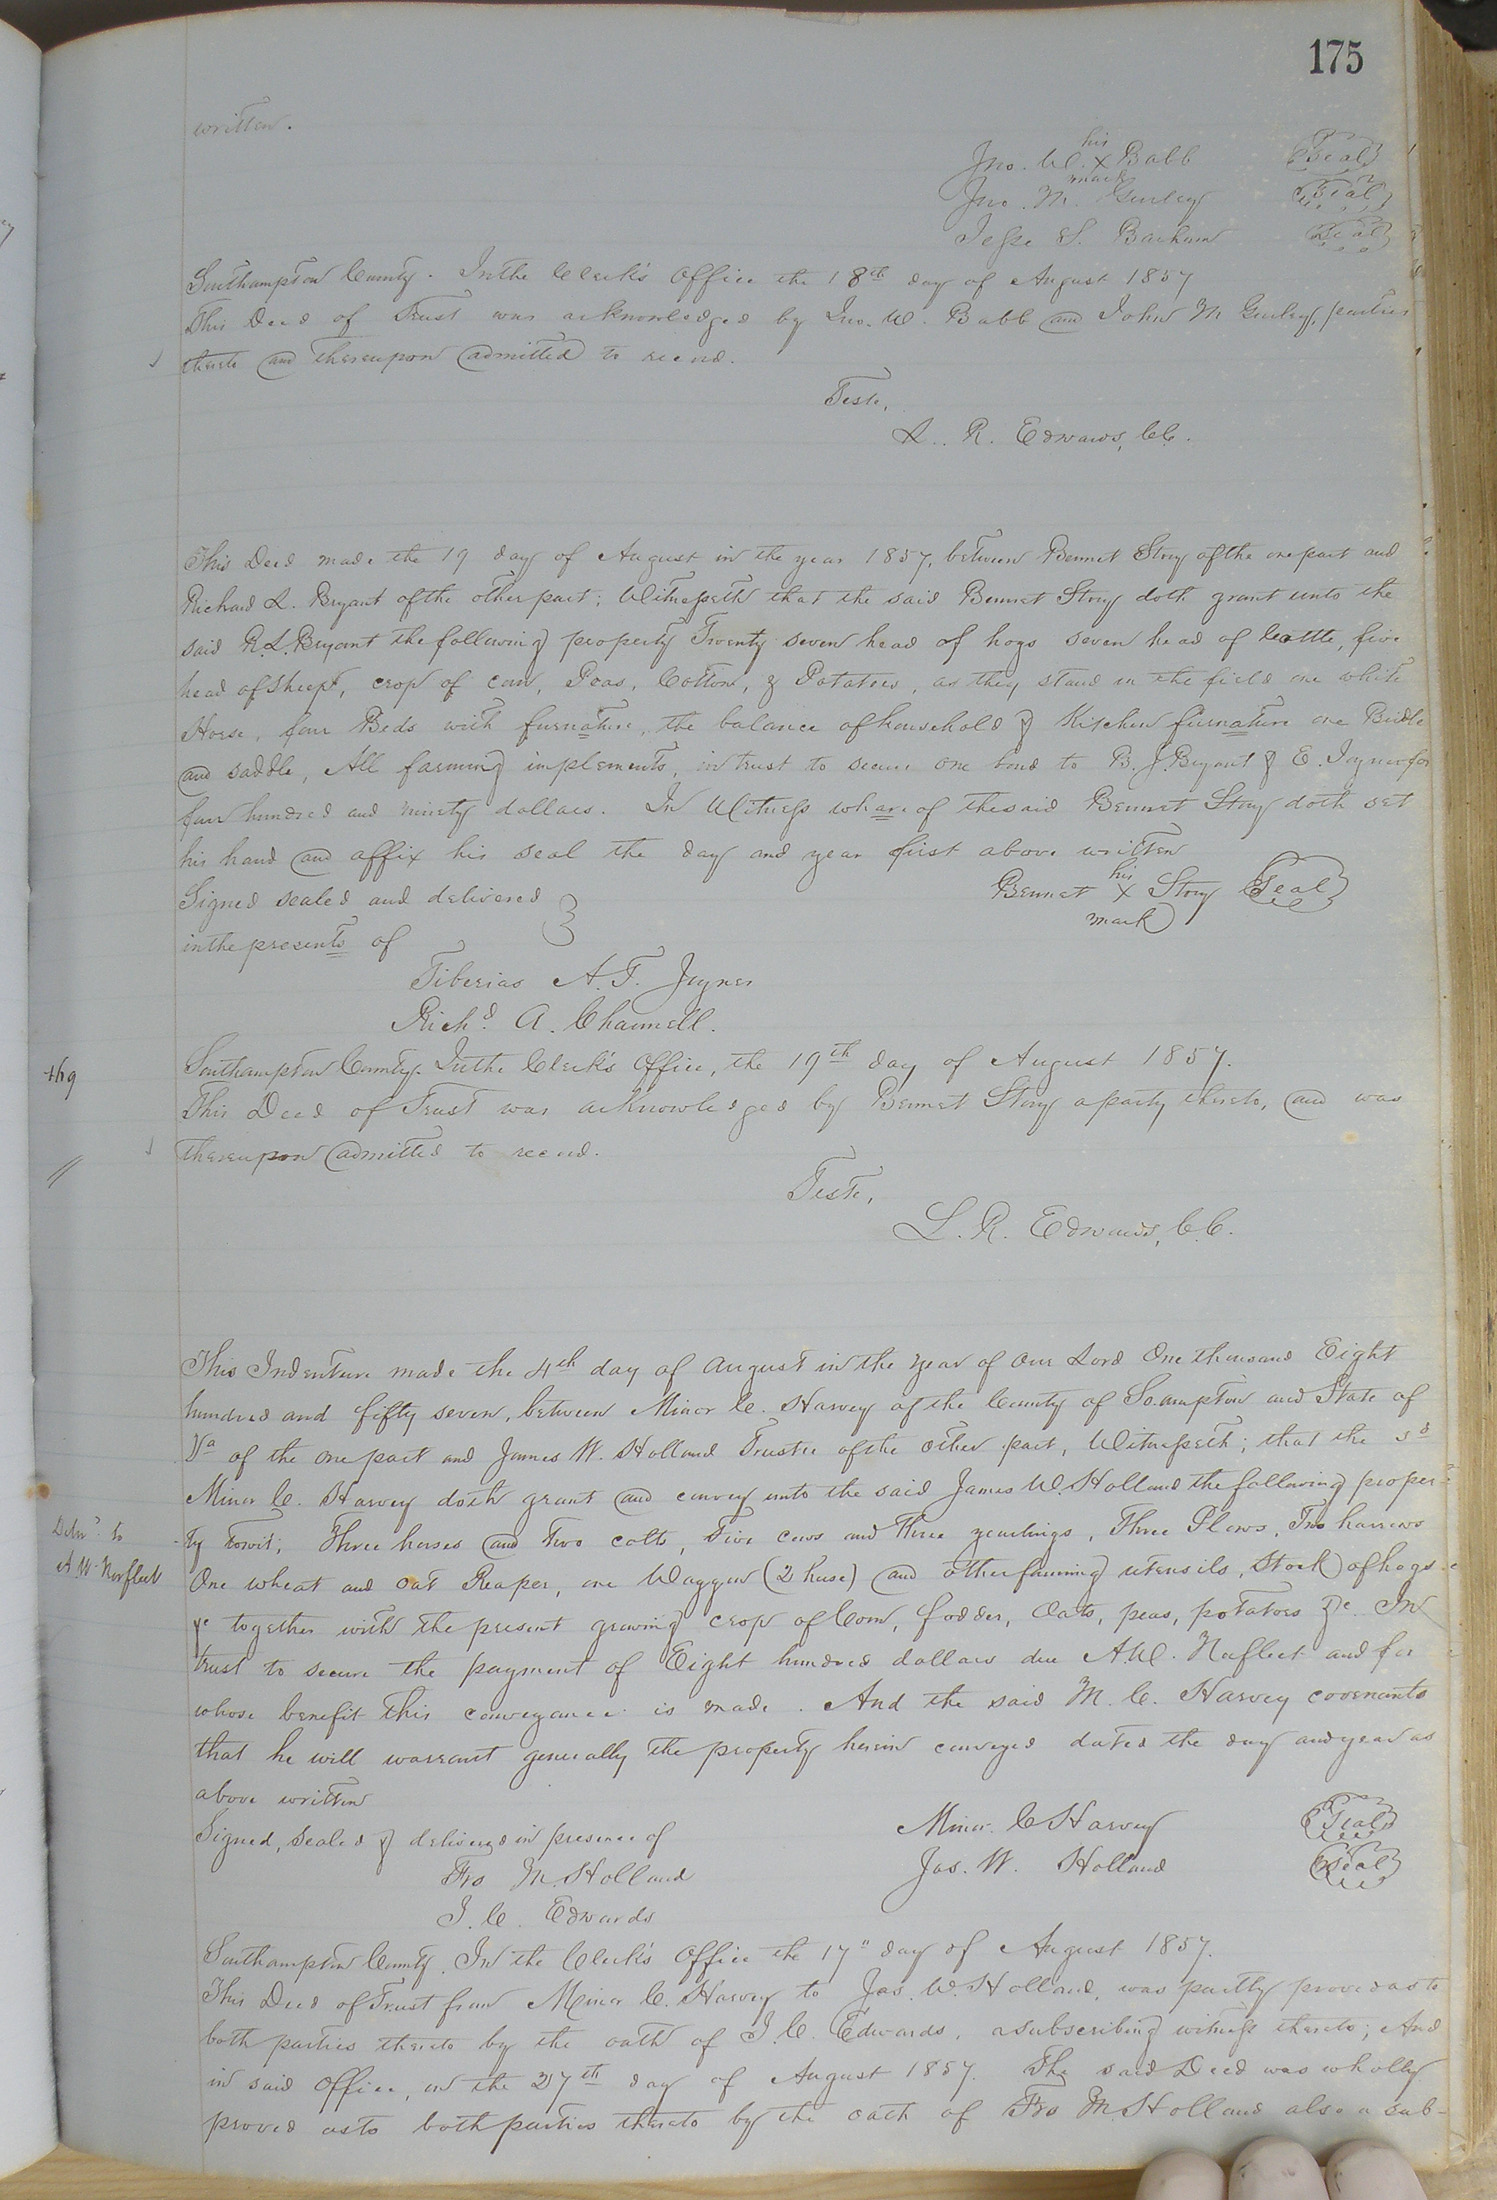 175
written.
his
Jno. W. X Babb (Seal)
mark
Jno. M. Gurley (Seal)
Jesse S. Barham (Seal)
Southampton County. In the Clerk's Office the 18th day of August 1857
This Deed of Trust was acknowledged by Jno. W. Babb and John M Gurley, parties
thereto and thereupon admitted to record.
Teste,
L. R. Edwards, CC.
This Deed made the 19 day of August in the year 1857, between Bennet Story of the one part and
Richard L. Bryant of the other part; Witnesseth that the said Bennet Story doth grant unto the
said R. L. Bryant the following property Twenty seven head of hogs seven head of Cattle, five
head of Sheep, crop of corn, Peas, Cotton, & Potatoes, as they stand in the field one white
Horse, four Beds with furnature, the balance of household & Kitchen furnature one Bridle
and saddle, All farming implements, in trust to secure one bond to B. J. Bryant & E. Joyner for
four hundred and ninety dollars. In Witness whareof the said Bennet Story doth set
his hand and affix his seal the day and year first above written
Signed sealed and delivered
in the presents of
his
Bennet X Story (Seal)
mark
Tiberias A. F. Joyner
Richd. A. Channell.
469
Southampton County. In the Clerk's Office, the 19th day of August 1857.
This Deed of Trust was acknowledged by Bennet Story a party thereto, and was
thereupon admitted to record.
Teste,
L. R. Edwards, C.C.
This Indenture made the 4th day of August in the year of Our Lord One thousand Eight
hundred and fifty seven, between Minor C. Harvey of the County of So.ampton and State of
Va of the one part and James W. Holland Trustee of the other part, Witnesseth; that the sd
Minor C. Harvey doth grant and convey unto the said James W. Holland the following proper-
Deliv'd to
A W Norfleet
-ty towit; Three horses and two colts, Five cows and Three yearlings, Three Plows, Two harrows
One wheat and oat Reaper, one Waggon (2 huse) and other farming utensils, Stock of hogs
&c together with the present growing crop of Corn, fodder, Oats, peas, potatoes &c. In
trust to secure the payment of Eight hundred dollars due A.W. Norfleet and for
whose benefit this conveyance is made. And the said M. C. Harvey covenants
that he will warrant generally the property herein conveyed dated the day and year as
above written
Signed, Sealed & delivered in presence of
Minor C Harvey (Seal)
Jas. W. Holland (Seal)
Fro M. Holland
J. C. Edwards
Southampton County. In the Clerk's Office the 17" day of August 1857.
This Deed of Trust from Minor C. Harvey to Jas. W. Holland, was partly proved as to
both parties thereto by the oath of J. C. Edwards, a subscribing witness thereto; And
in said Office, on the 27th day of August 1857. The said Deed was wholly
proved as to both parties thereto by the oath of Fro M. Holland also a sub-